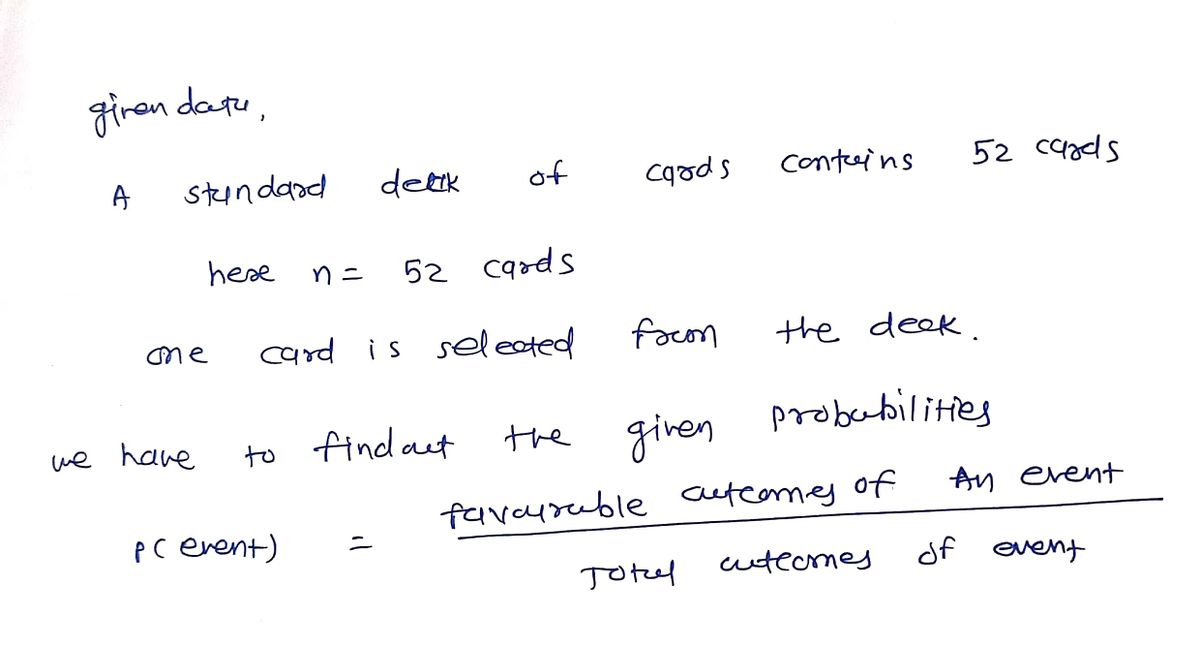 given data,
A standard deck of cards contains 52 cards
here n = 52 cards
one card is selected from the deck.
we have to find out the given probabilities
P( event) = favourable outcomes of An event
Total outcomes of event